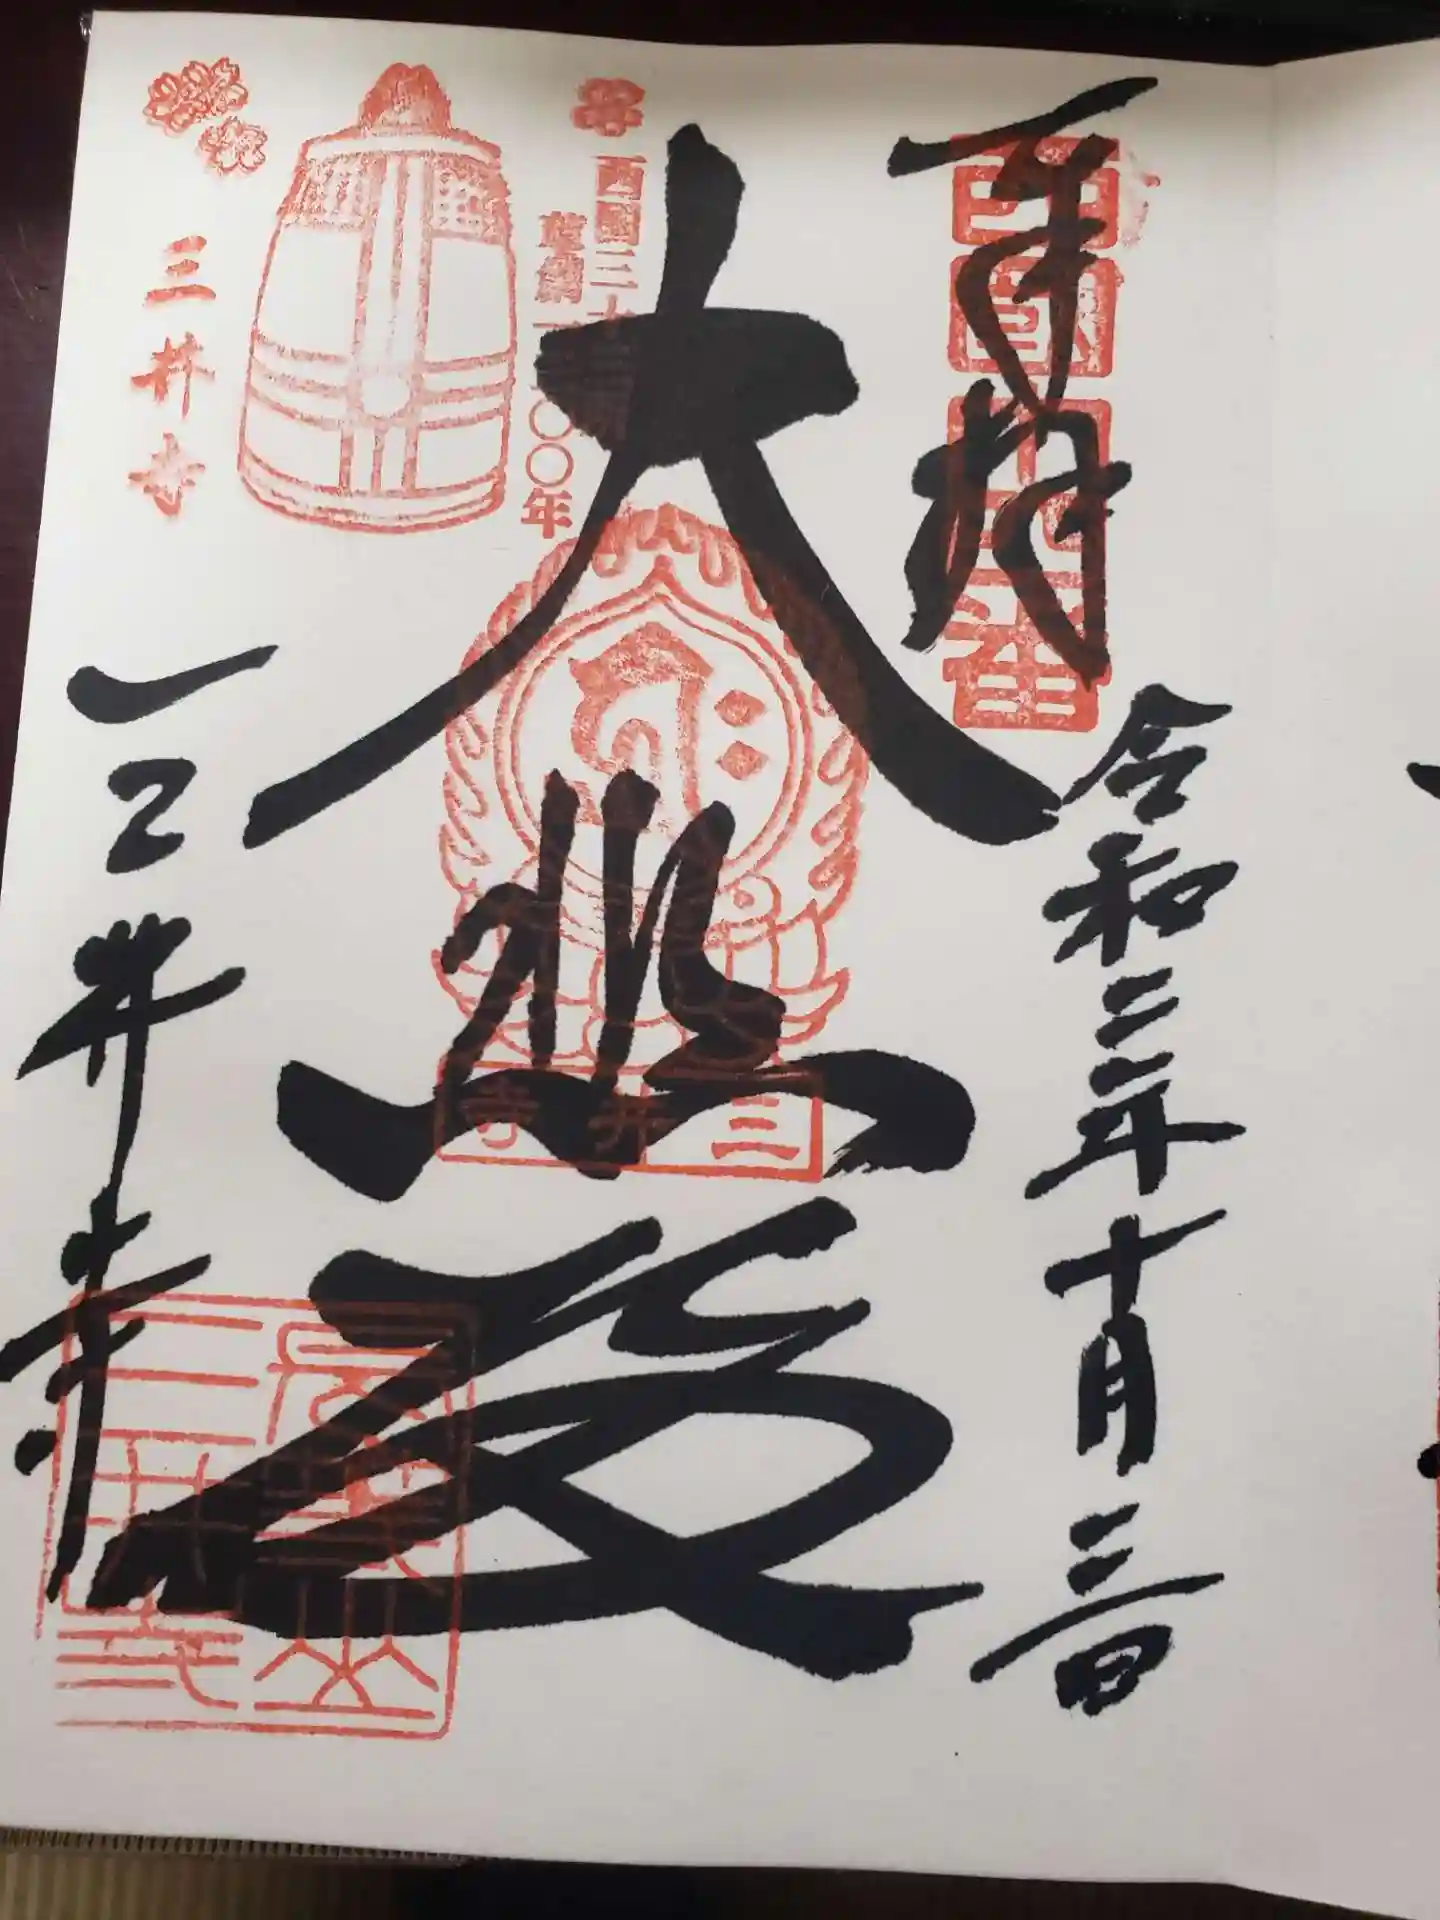 奉拝
西國十四番
令和二年十月三日
大悲殿
西国三十三所
草創一三〇〇年
三井寺
三井寺
三井寺